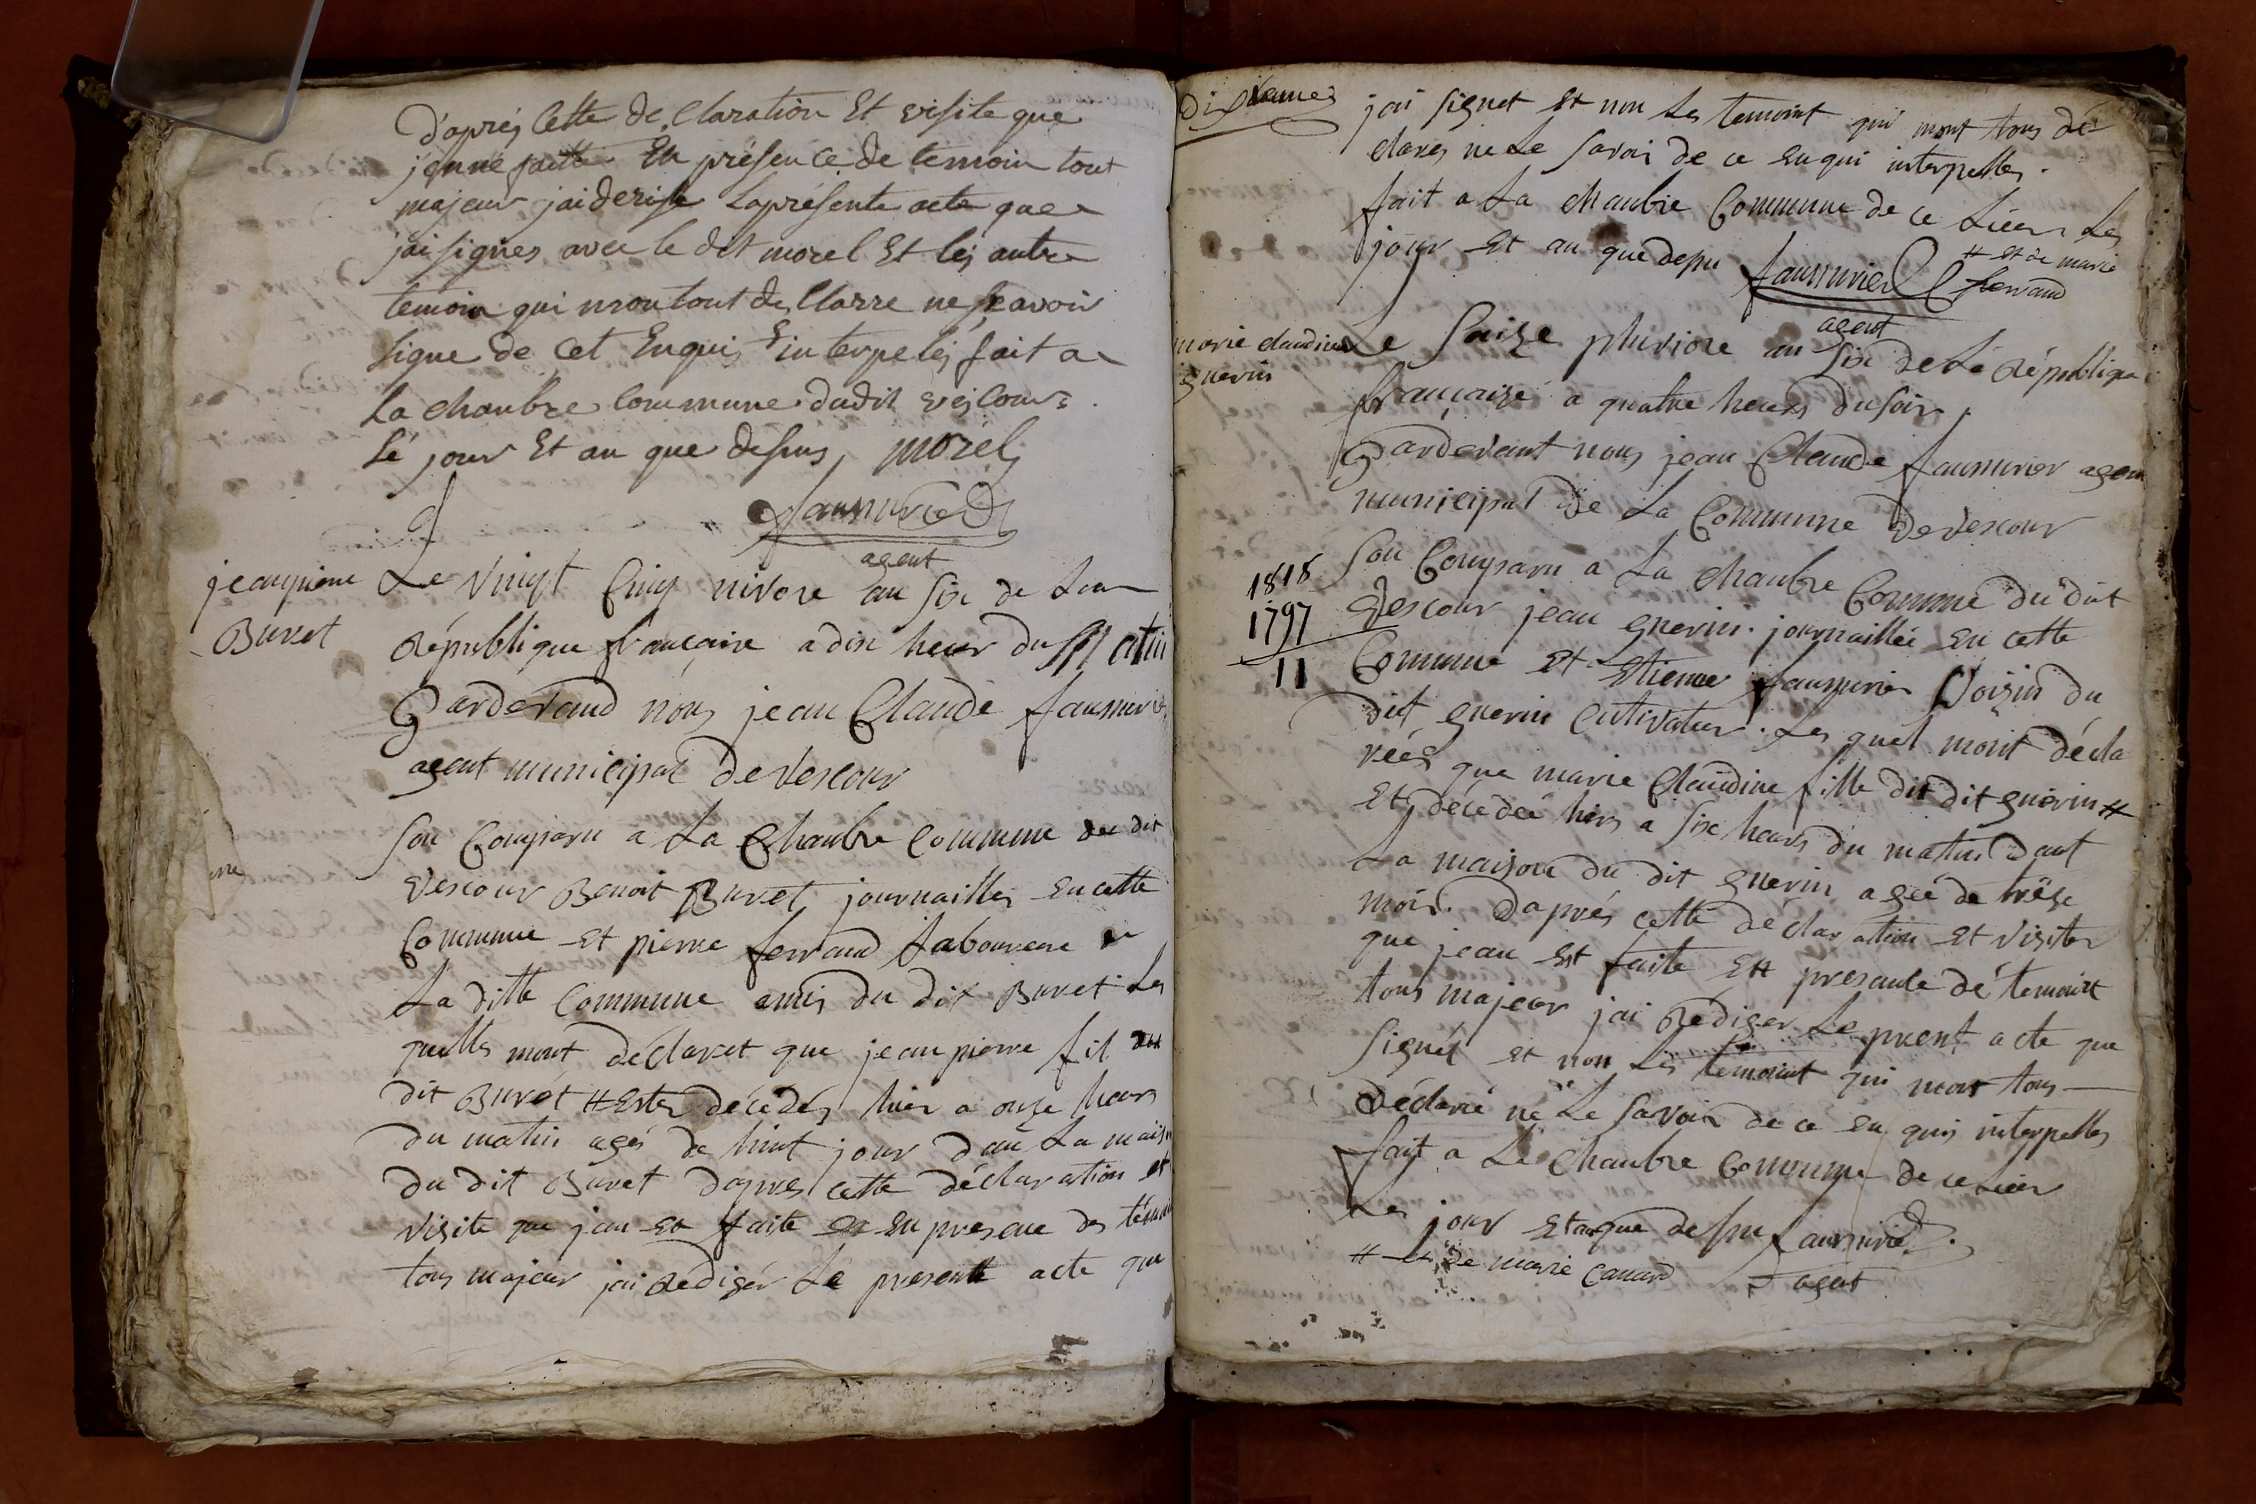 d'aprés Cette de Claration Et visite que
j'en né faitte En présence de temoin tout
majeur jai derisse La présente acte que
jai signes avec le dit morel Et les autre
temoin qui mon tout de Clarre ne scavoir
signe de cet Enquis & interpelés fait a
La chanbre Commune dudit vescour
Lé jour Et an que dessus morel
faumuried
agent
jeanpierre
Buret
Le vingt Cinq nivose an six de La
République francaise a dix heur du Matin
Pardevand nous jean Claude faumurie
agent municipal de vescour
Son Comparu a La Chanbre Commune du dit
vescour Benoit Buret journaillés en cette
Commune Et pierre ferraud Laboureur
La ditte Commune amis du dit Buret Les
quells mont déclaret que jean pierre fil du
dit Buret # Ests décédés hier a onze heurs
du matin agés de huit jour dan La maison
du dit Buret dapres cette déclaration et
visite que jan Et faite en presence des témoin
tous majeur jai Rediger Le presente acte que
Dixieme
jai signet Et non Les temoint qui mont tous dé
clares ne Le savoi de ce enqui interpelles.
fait a La Chanbre Commune de ce Lieu Les
jour Et an que depu faumuried # Et de marie
ferraud
agent
marie claudine
guerin
Le Saize pluviose an Six de La République
française a quatre heures du soir
Pardevant nous jean Claude faumurier agent
municipal de La Commune de vescour
Son Comparu a La Chanbre Commune du dit
1818
1797
11
Vescour jean guerin journaillée en cette
Commune Et Etienne faumurier Voizin du
dit guerin Cultivateur. Les quel mont décla
réés que marie Claudine fille du dit guerin #
Et décédéé hiers a six heurs du matin dant
La maison du dit guerin agéé de trèze
mois. Daprés cette déclaration et visiter
que jean Est faite En presante dé temoint
tous majeur jai Rédiger Le prent acte que
Signét et non Les temoint qui mont tous
Déclaré né Le savoir de ce en quis interpelles
fait a Le Chanbre Commune de ce Lieu
Les jour Et an que dessu faumuried
# Et de marie Canard agent